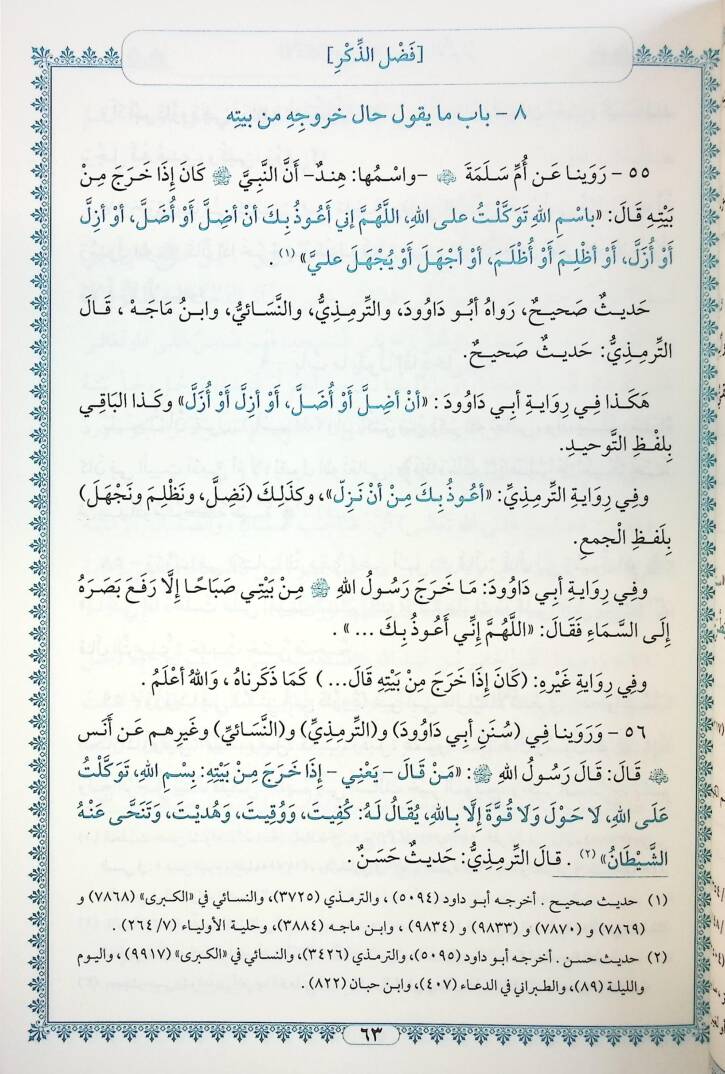 [فَضْل الذِّكْرِ]
٨ - باب ما يقول حال خروجِهِ من بيتِه
٥٥ - رَوَينا عَن أُمِّ سَلَمَةَ ﵂ -واسْمُها: هِندٌ- أَنَّ النَّبِيَّ ﷺ كَان إذَا خَرَجَ مِنْ
بَيْتِهِ قَالَ: «باسْمِ اللهِ تَوَكَّلْتُ على اللهِ، اللَّهُمَّ إني أَعُوذُ بِكَ أنْ أضِلَّ أَوْ أُضَلَّ، أوْ أزِلَّ
أَوْ أُزَلَّ، أَوْ أظْلِمَ أَوْ أُظْلَمَ، أوْ أجْهَلَ أَوْ يُجْهَلَ عليَّ» (١) .
حَديثٌ صَحيحٌ، رَواهُ أبُو دَاوُودَ، والتِّرمذِيُّ، والنَّسائيُّ، وابنُ مَاجَهْ ، قَالَ
التِّرمِذِيُّ: حَديثٌ صَحيحٌ.
هَكَذا فِي رِوَايةِ أبي دَاوُودَ : «أنْ أضِلَّ أَوْ أُضَلَّ، أَوْ أزِلَّ أَوْ أُزَلَّ» وكَذا البَاقِي
بِلفْظِ التَّوحيدِ.
وفِي رِوَايةِ التِّرمِذِيِّ: «أعُوذُ بِكَ مِنْ أنْ نَزِلّ»، وكذَلكَ (نَضِلَّ، ونَظْلِمَ ونَجْهَلَ)
بِلَفظِ الْجمعِ.
وفِي رِوَايةِ أبي دَاوُودَ: مَا خَرَجَ رَسُولُ اللهِ ﷺ مِنْ بَيْتِي صَبَاحًا إلَّا رَفَعَ بَصَرَهُ
إِلَى السَّمَاءِ فَقَالَ: «اللَّهُمَّ إِنِّي أَعُوذُ بِكَ ... » .
وفِي رِوَايةِ غَيْرِهِ: (كَان إِذَا خَرَجَ مِنْ بَيْتِهِ قَالَ... ) كَمَا ذَكَرناهُ ، وَاللهُ أعْلَمُ .
٥٦ - وَرَوَينا فِي (سُنَنِ أبي دَاوُودَ) و(التِّرمِذِيِّ) و(النَّسَائيِّ) وغَيرِهم عَن أنَس
﵁ قَالَ: قَالَ رَسُولُ اللهِ ﷺ: «مَنْ قَالَ - يَعْنِي - إِذَا خَرَجَ مِنْ بَيْتِهِ: بِسْمِ اللهِ، تَوَكَّلْتُ
عَلَى اللهِ، لا حَوْلَ وَلا قُوَّةَ إلَّا بِاللهِ، يُقَالُ لَهُ: كُفِيتَ، وَوُقِيتَ، وَهُدِيْتَ، وَتَنَحَّى عَنْهُ
الشَّيْطَانُ» (٢) . قالَ التِّرمِذيُّ: حَديثٌ حَسَنٌ .
(١) حديث صحيح . أخرجه أبو داود (٥٠٩٤) ، والترمذي (٣٧٢٥)، والنسائي في «الكبرى» (٧٨٦٨) و
(٧٨٦٩) و (٧٨٧٠) و (٩٨٣٣) و (٩٨٣٤) ، وابن ماجه (٣٨٨٤)، وحلية الأولياء (٧/ ٢٦٤) .
(٢) حديث حسن . أخرجه أبو داود (٥٠٩٥)، والترمذي (٣٤٢٦)، والنسائي في «الكبرى» (٩٩١٧)، واليوم
والليلة (٨٩)، والطبراني في الدعاء (٤٠٧)، وابن حبان (٨٢٢) .
٦٣